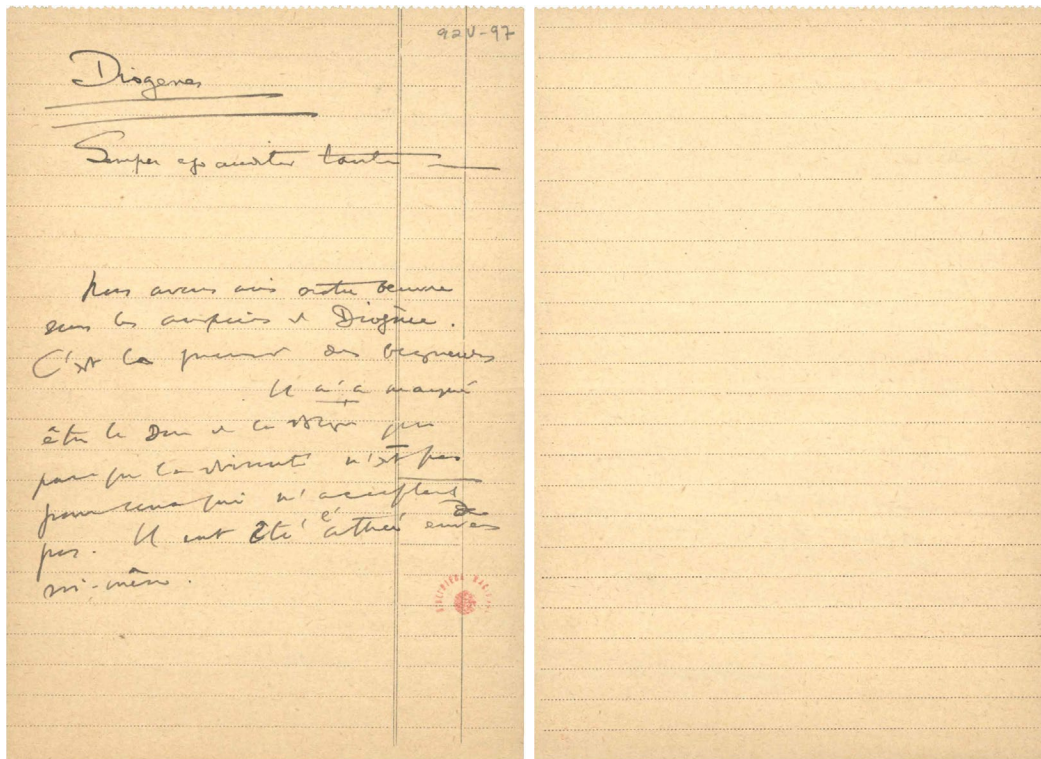 92V-97
Diogenes
Semper ego auditor tantum
Nous avons mis notre œuvre
sous les auspices de Diogène.
C'est le premier des
Il n'a manqué
être le Dieu de la que
parce que la divinité n'est pas
pour ceux qui n'acceptent
pas. Il eut été l'athée de
soi-même.